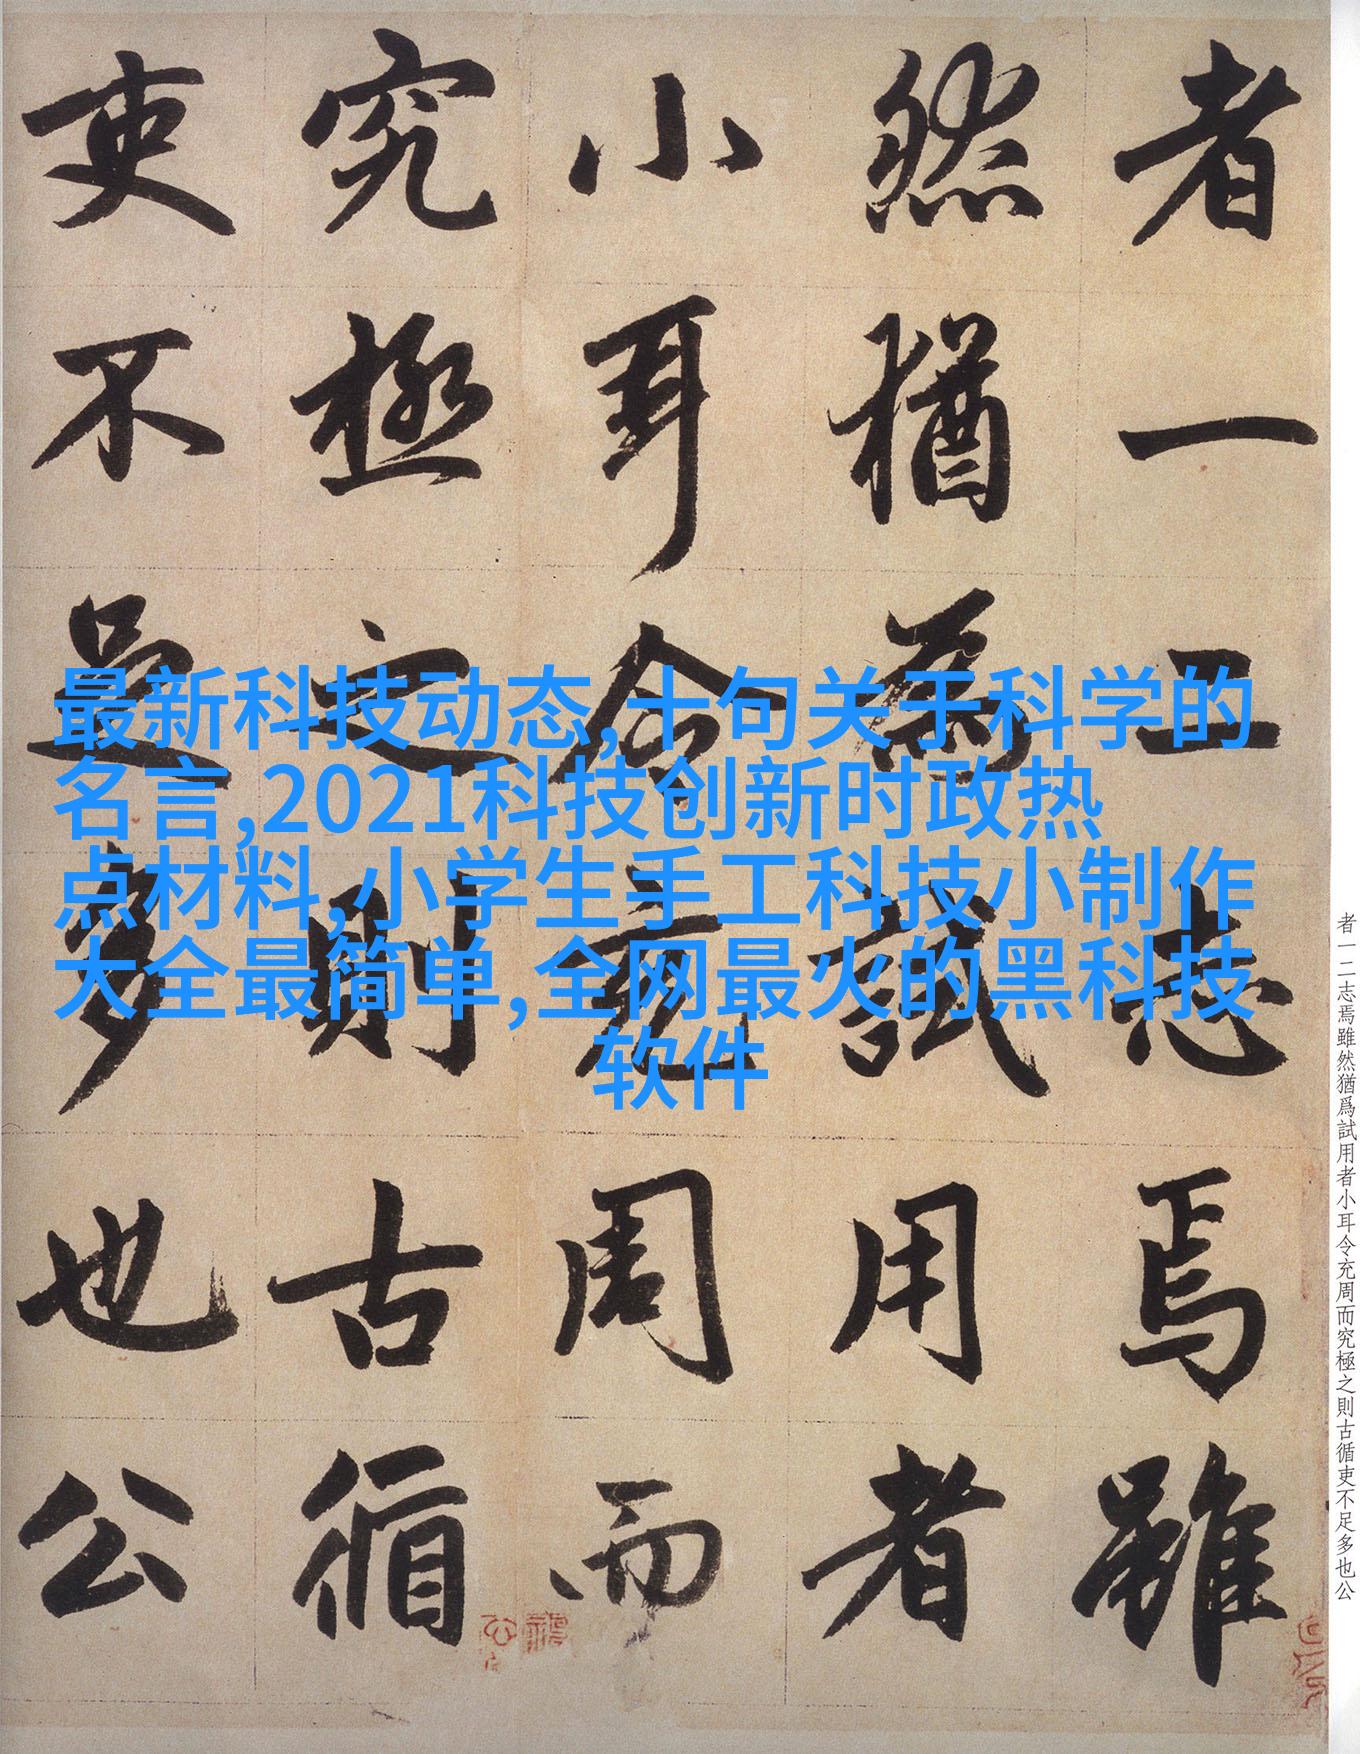 者一二志焉雖
然猶為試用者
小耳令充周而
究極之則古循
吏不足多也公
最新科技动态,十句关于科学的
名言,2021科技创新时政热
点材料,小学生手工科技小制作
大全最简单,全网最火的黑科技
软件
者一二志焉雖然猶爲試用者小耳令充周而究極之則古循吏不足多也公